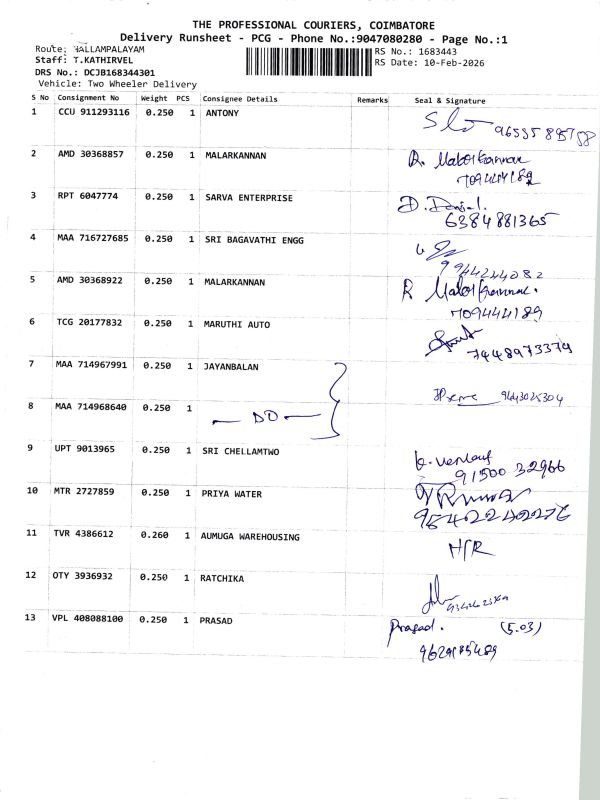 THE PROFESSIONAL COURIERS, COIMBATORE
Delivery Runsheet - PCG - Phone No.:9047080280 - Page No.:1
Route: HALLAMPALAYAM
RS No.: 1683443
Staff: T.KATHIRVEL
RS Date: 10-Feb-2026
DRS No.: DCJB168344301
Vehicle: Two Wheeler Delivery
S No Consignment No Weight PCS Consignee Details Remarks Seal & Signature
1 CCU 911293116 0.250 1 ANTONY
2 AMD 30368857 0.250 1 MALARKANNAN R. Malarkannan
7094441189
3 RPT 6047774 0.250 1 SARVA ENTERPRISE D. Daniel.
6384881365
4 MAA 716727685 0.250 1 SRI BAGAVATHI ENGG
9944244082
5 AMD 30368922 0.250 1 MALARKANNAN R Malarkannan.
7094441189
6 TCG 20177832 0.250 1 MARUTHI AUTO
7448973379
7 MAA 714967991 0.250 1 JAYANBALAN
9443025304
8 MAA 714968640 0.250 1 — DO —
9 UPT 9013965 0.250 1 SRI CHELLAMTWO
91500 32966
10 MTR 2727859 0.250 1 PRIYA WATER
9542240276
11 TVR 4386612 0.260 1 AUMUGA WAREHOUSING H/R
12 OTY 3936932 0.250 1 RATCHIKA
13 VPL 408088100 0.250 1 PRASAD Prasad. (5.03)
9629185489